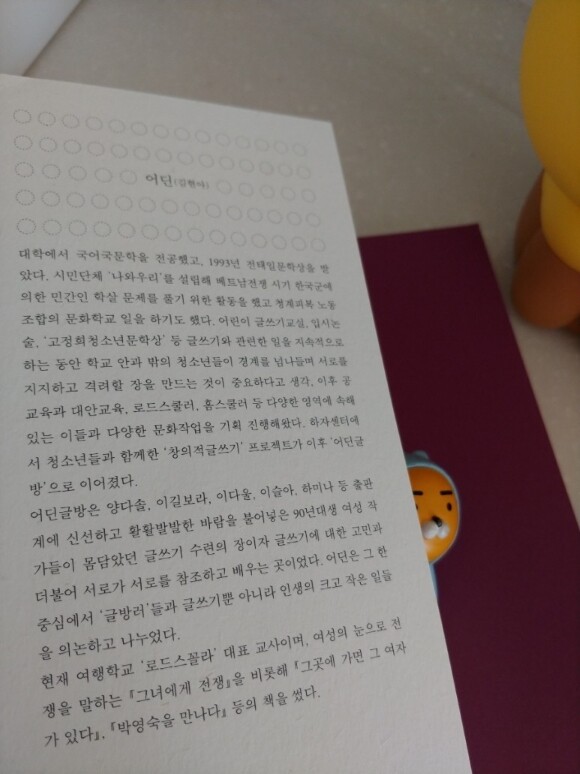 어딘(김현아)
대학에서 국어국문학을 전공했고, 1993년 전태일문학상을 받
았다. 시민단체 '나와우리'를 설립해 베트남전쟁 시기 한국군에
의한 민간인 학살 문제를 풀기 위한 활동을 했고 청계피복 노동
조합의 문화학교 일을 하기도 했다. 어린이 글쓰기교실, 입시논
술, '고정희청소년문학상' 등 글쓰기와 관련한 일을 지속적으로
하는 동안 학교 안과 밖의 청소년들이 경계를 넘나들며 서로를
지지하고 격려할 장을 만드는 것이 중요하다고 생각, 이후 공
교육과 대안교육, 로드스쿨러, 홈스쿨러 등 다양한 영역에 속해
있는 이들과 다양한 문화작업을 기획 진행해왔다. 하자센터에
서 청소년들과 함께한 '창의적글쓰기' 프로젝트가 이후 '어딘글
방'으로 이어졌다.
어딘글방은 양다솔, 이길보라, 이다울, 이슬아, 하미나 등 출판
계에 신선하고 활활발발한 바람을 불어넣은 90년대생 여성 작
가들이 몸담았던 글쓰기 수련의 장이자 글쓰기에 대한 고민과
더불어 서로가 서로를 참조하고 배우는 곳이었다. 어딘은 그 한
중심에서 '글방러'들과 글쓰기뿐 아니라 인생의 크고 작은 일들
을 의논하고 나누었다.
현재 여행학교 '로드스꼴라' 대표 교사이며, 여성의 눈으로 전
쟁을 말하는 『그녀에게 전쟁』을 비롯해 『그곳에 가면 그 여자
가 있다』, 『박영숙을 만나다』 등의 책을 썼다.